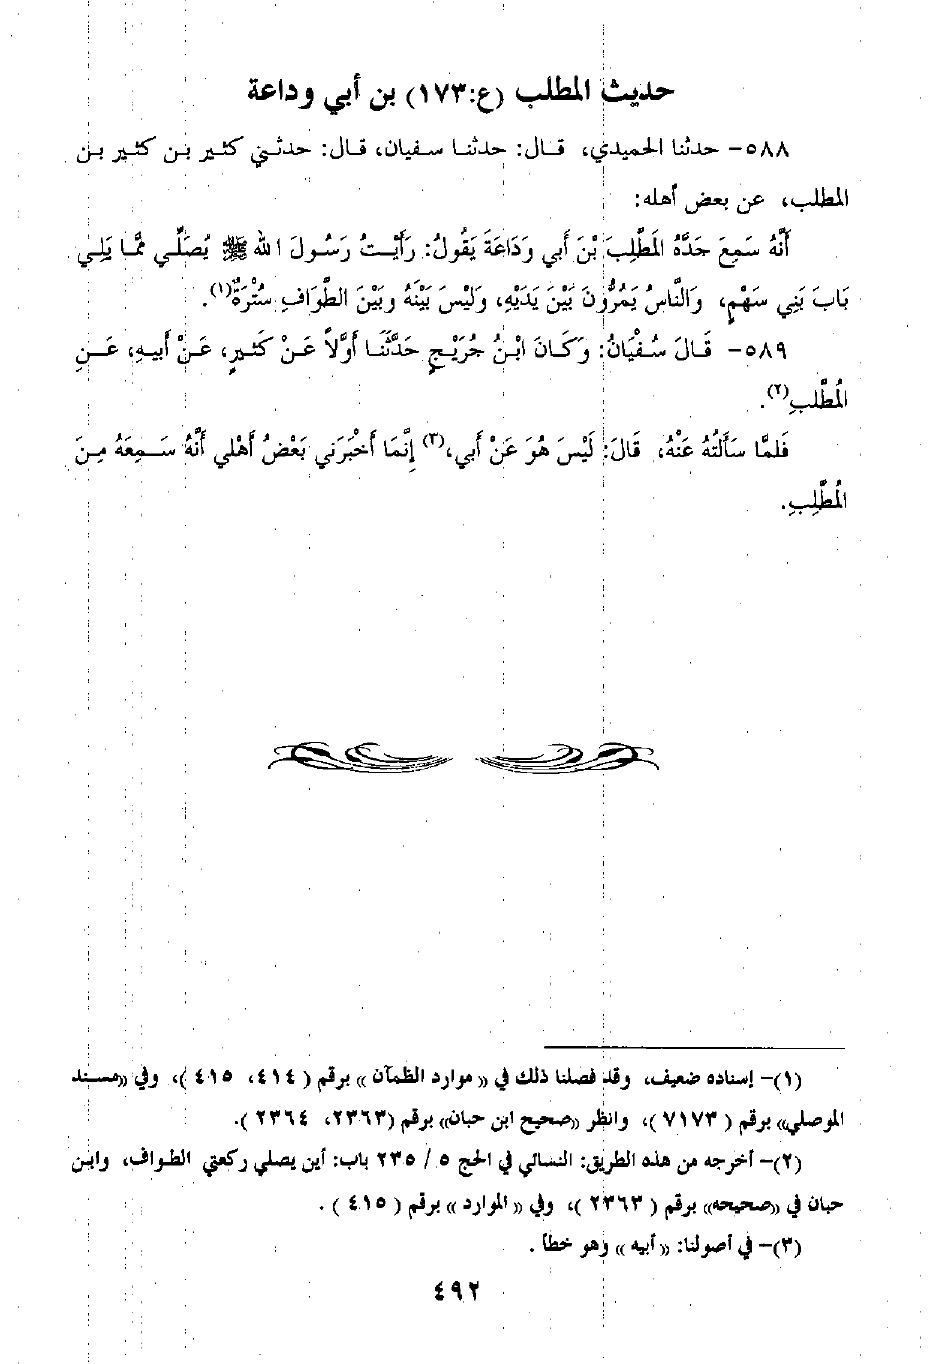 حديث المطلب (ع:١٧٣) بن أبي وداعة
٥٨٨- حدثنا الحميدي، قال: حدثنا سفيان، قال: حدثني كثير بن كثير بن
المطلب، عن بعض أهله:
أَنَّهُ سَمِعَ جَدَّهُ المَطَّلِبَ بْنَ أَبي وَدَاعَةَ يَقُولُ: رَأَيْتُ رَسُولَ الله ﷺ يُصَلِّي مِمَّا يَلِي
بَابَ بَنِي سَهْمٍ، وَالنَّاسُ يَمُرُّونَ بَيْنَ يَدَيْهِ، وَلَيْسَ بَيْنَهُ وبَيْنَ الطَّوَافِ سُتْرَةٌ(١).
٥٨٩- قَالَ سُفْيَانُ: وَكَانَ ابْنُ جُرَيْجٍ حَدَّثَنَا أَوَّلاً عَنْ كَثِيرٍ، عَنْ أَبيهِ، عَنِ
المُطَّلبِ(٢).
فَلمَّا سَأَلتُهُ عَنْهُ، قَالَ: لَيْسَ هُوَ عَنْ أَبي،(٣) إِنَّمَا أَخْبَرَني بَعْضُ أَهْلي أَنَّهُ سَمِعَهُ مِنَ
المُطَّلِبِ.
(١)- إسناده ضعيف، وقد فصلنا ذلك في «موارد الظمآن» برقم (٤١٤، ٤١٥)، وفي «مسند
الموصلي» برقم (٧١٧٣)، وانظر «صحيح ابن حبان» برقم (٢٣٦٣، ٢٣٦٤).
(٢)- أخرجه من هذه الطريق: النسائي في الحج ٥ / ٢٣٥ باب: أين يصلي ركعتي الطواف، وابن
حبان في «صحيحه» برقم (٢٣٦٣)، وفي «الموارد» برقم (٤١٥).
(٣)- في أصولنا: «أبيه» وهو خطأ.
٤٩٢